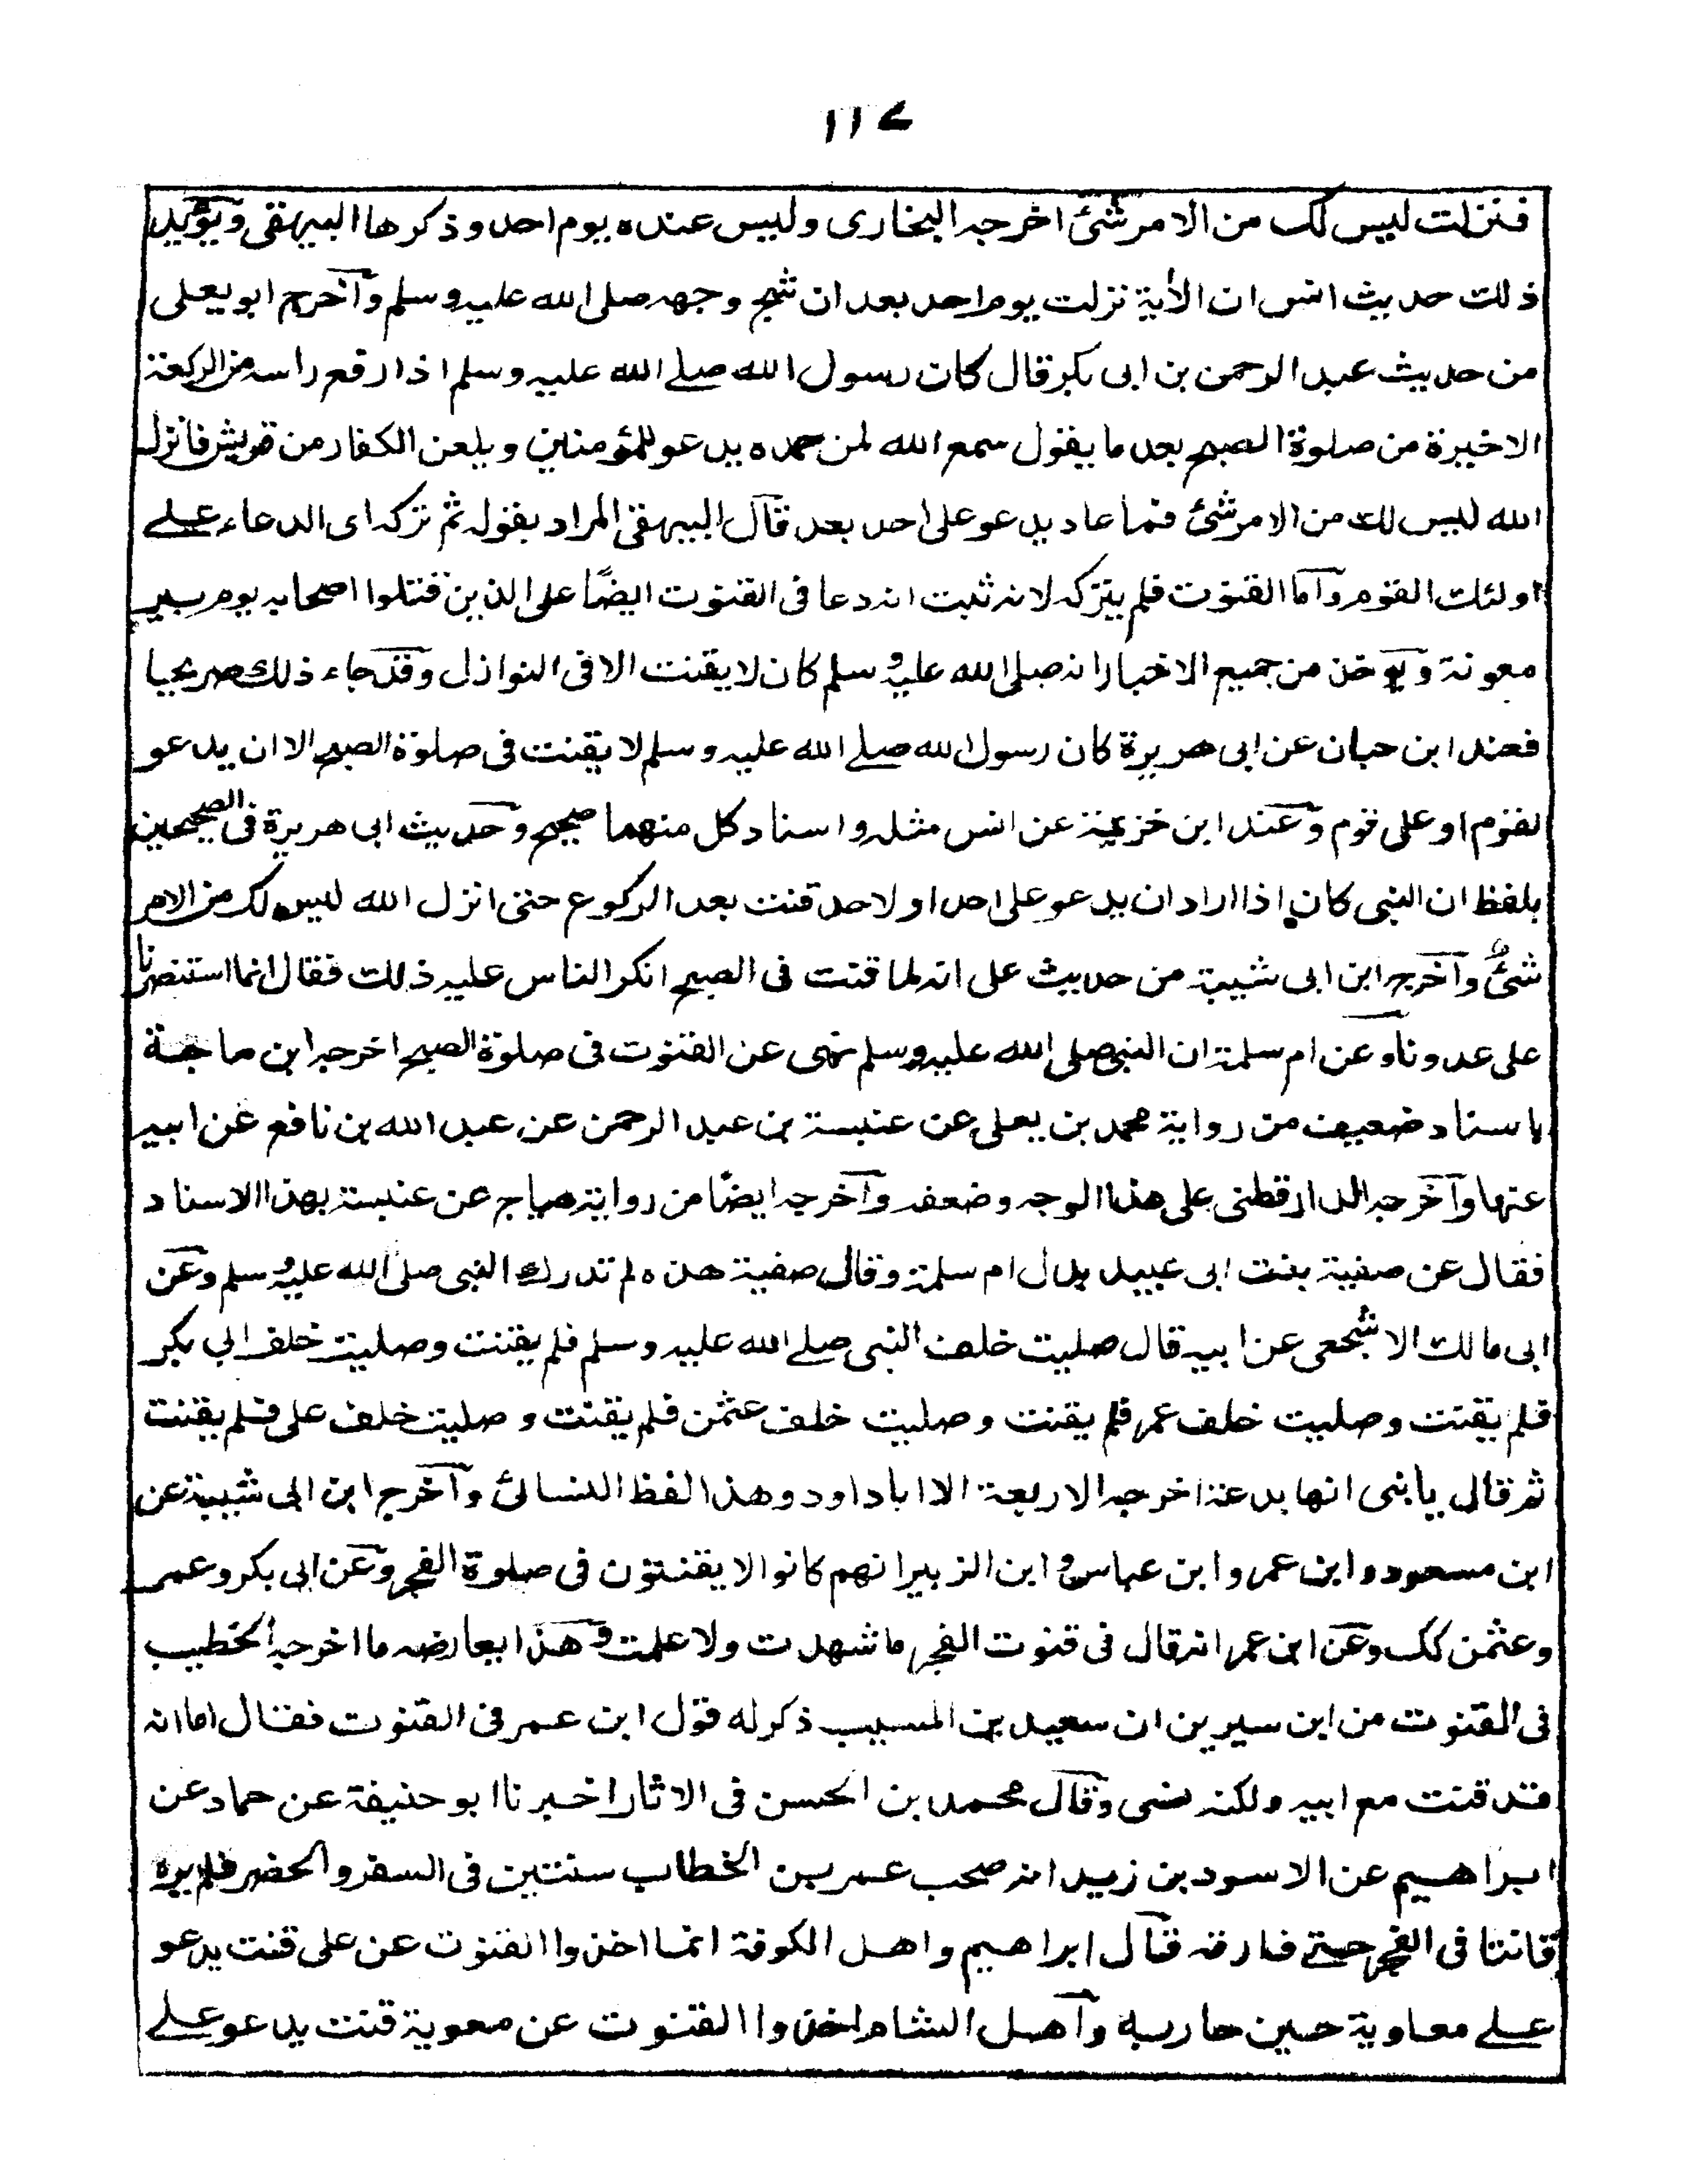 ١١٧
فنزلت ليس لک من الامر شئ اخرجه البخارى وليس عنده يوم احد وذكرها البيهقى ويؤيد
ذلك حديث انس ان الأية نزلت يوم احد بعد ان شج وجهه صلى الله عليه وسلم وآخرج ابو يعلى
من حديث عبد الرحمن بن ابى بكر قال كان رسول الله صلے الله عليه وسلم اذا رفع راسه من الركعة
الاخيرة من صلوة الصبح بعد ما يقول سمع الله لمن حمده يدعو للمؤمنين ويلعن الكفار من قريش فانزل
الله ليس لك من الامر شئ فما عاد يدعو على احد بعد قآل البيهقى المراد بقوله ثم تركه اى الدعاء علے
اولئك القوم وآما القنوت فلم يتركه لانه ثبت انه دعا فى القنوت ايضًا على الذين قتلوا اصحابه يوم بير
معونة ويؤخذ من جميع الاخبار انه صلى الله عليه وسلم كان لا يقنت الا فى النوازل وقد جاء ذلك صريحا
فعند ابن حبان عن ابى هريرة كان رسول الله صلے الله عليه وسلم لا يقنت فى صلوة الصبح الا ان يدعو
لقوم او على قوم وعند ابن خزيمة عن انس مثله واسناد كل منهما صحيح وحديث ابى هريرة فى الصحيحين
بلفظ ان النبى كان اذا اراد ان يدعو على احد او لاحد قنت بعد الركوع حتى انزل الله ليس لک من الامر
شئ وآخرج ابن ابى شيبة من حديث على انه لما قنت فى الصبح انكر الناس عليه ذلك فقال انما استنصرنا
على عدونا وعن ام سلمة ان النبى صلى الله عليه وسلم نهى عن القنوت فى صلوة الصبح اخرجه ابن ماجة
باسناد ضعيف من رواية محمد بن يعلى عن عنبسة بن عبد الرحمن عن عبد الله بن نافع عن ابيه
عنها وآخرجه الدارقطنى على هذا الوجه وضعفه وآخرجه ايضًا من رواية هياج عن عنبسة بهذا الاسناد
فقال عن صفية بنت ابى عبيد بدل ام سلمة وقال صفية هذه لم تدرك النبى صلى الله عليه وسلم وعن
ابى مالك الاشجعى عن ابيه قال صليت خلف النبى صلے الله عليه وسلم فلم يقنت وصليت خلف ابى بكر
فلم يقنت وصليت خلف عمر فلم يقنت وصليت خلف عثمن فلم يقنت وصليت خلف على فلم يقنت
ثم قال يا بنى انها بدعة اخرجه الاربعة الا ابا داود وهذا لفظ النسائى وآخرج ابن ابى شيبة عن
ابن مسعود وابن عمر وابن عباس و ابن الزبير انهم كانوا لا يقنتون فى صلوة الفجر وعن ابى بكر وعمر
وعثمن كك وعن ابن عمر انه قال فى قنوت الفجر ما شهدت ولا علمت وهذا يعارضه ما اخرجه الخطيب
فى القنوت من ابن سيرين ان سعيد بن المسيب ذكر له قول ابن عمر فى القنوت فقال اما انه
قد قنت مع ابيه ولكنه نسى وقال محمد بن الحسن فى الاثار اخبرنا ابو حنيفة عن حماد عن
ابراهيم عن الاسود بن زيد انه صحب عمر بن الخطاب سنتين فى السفر والحضر فلم يره
قانتا فى الفجر حتے فارقه قآل ابراهيم واهل الكوفة انما اخذوا القنوت عن على قنت يدعو
علے معاوية حين حاربه وآهل الشام اخذوا القنوت عن معوية قنت يدعو علے